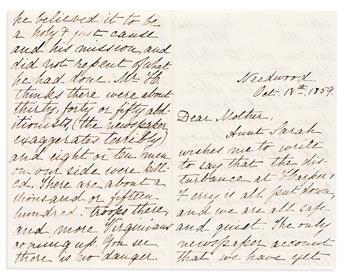 he believed it to be
a holy & just cause
and his mission, and
did not repent of what
he had done. Mr H.
thinks there were about
thirty, forty or fifty abo-
litionists, (the newspaper
exaggerates terribly)
and eight or ten men
on our side were kill-
ed. There are about a
thousand or fifteen
hundred troops there,
and more Virginians
coming up. You see
there is no danger
Needwood.
Oct 18th, 1859.
Dear Mother,
Aunt Sarah
wishes me to write
to say that the dis-
turbance at Harpers
Ferry is all put down
and we are all safe
and quiet. The only
newspaper account
that we have yet